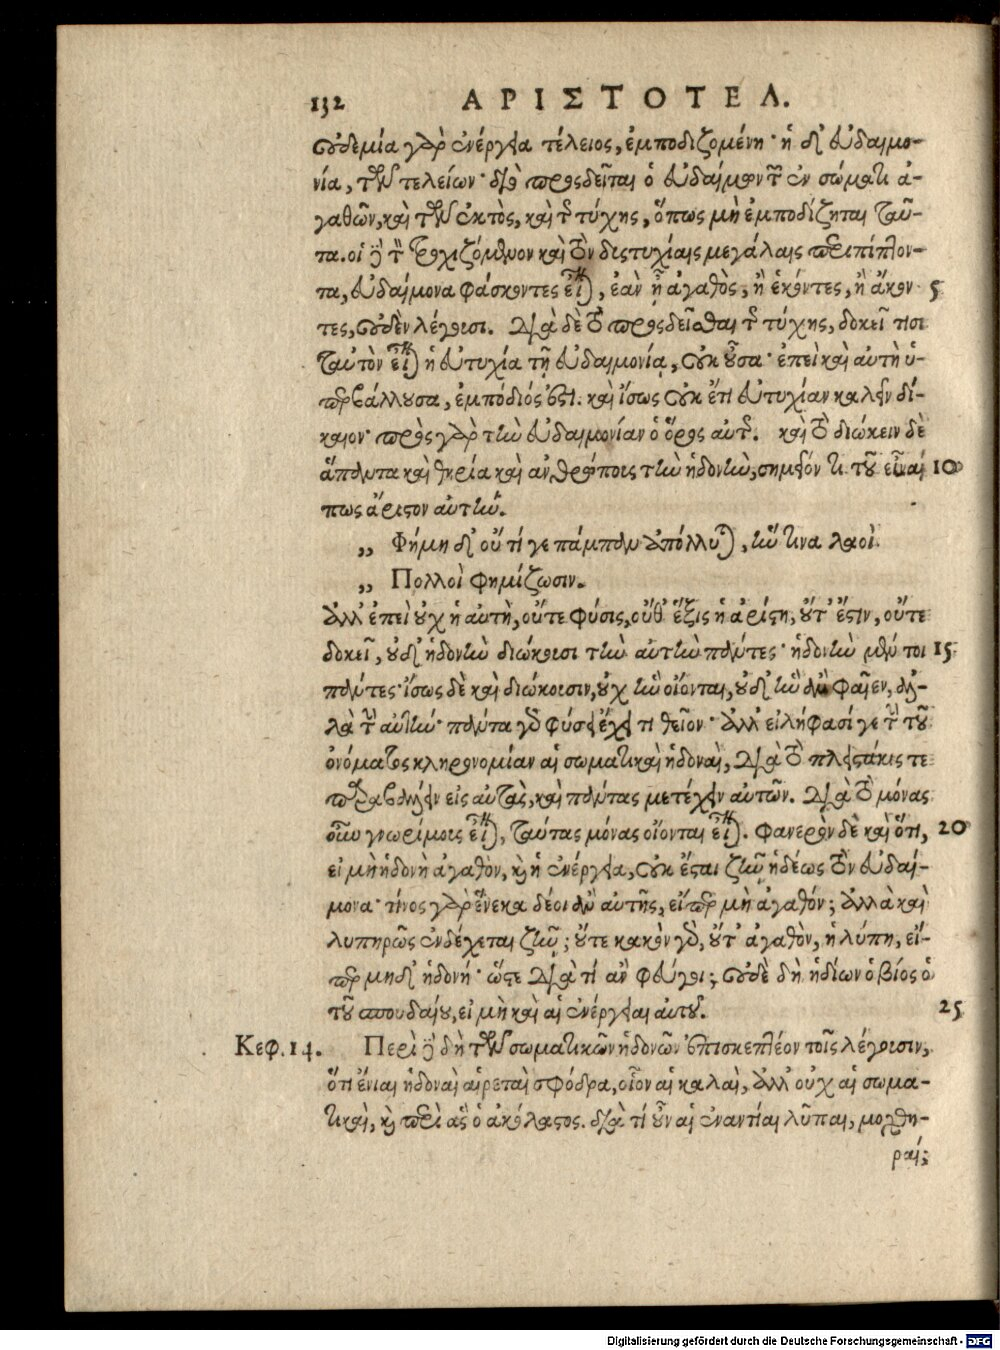 132 ΑΡΙΣΤΟΤΕΛ.
οὐδεμία γὰρ ἐνέργεια τέλειος, ἐμποδιζομένη· ἡ δ' εὐδαιμο-
νία, τῶν τελείων· διὸ προςδεῖται ὁ εὐδαίμων τῶν ἐν σώματι ἀ-
γαθῶν, καὶ τῶν ἐκτὸς, καὶ τῆς τύχης, ὅπως μὴ ἐμποδίζηται ταῦ-
τα. οἱ δὲ τὸν τροχιζόμενον καὶ τὸν δυςτυχίαις μεγάλαις περιπίπτον-
τα, εὐδαίμονα φάσκοντες εἶναι, ἐὰν ᾖ ἀγαθὸς, ἢ ἑκόντες, ἢ ἄκον- 5
τες, οὐδὲν λέγουσι. διὰ δὲ τὸ προςδεῖσθαι τῆς τύχης, δοκεῖ τισι
ταὐτὸν εἶναι ἡ εὐτυχία τῇ εὐδαιμονίᾳ, οὐκ οὖσα· ἐπεὶ καὶ αὐτὴ ὑ-
περβάλλουσα, ἐμπόδιός ἐστι. καὶ ἴσως οὐκ ἔτι εὐτυχίαν καλεῖν δί-
καιον· πρὸς γὰρ τὴν εὐδαιμονίαν ὁ ὅρος αὐτῆς. καὶ τὸ διώκειν δὲ
ἅπαντα καὶ θηρία καὶ ἀνθρώποις τὴν ἡδονὴν, σημεῖόν τι τοῦ εἶναί 10
πως ἄριστον αὐτήν.
„ Φήμη δ' οὔ τί γε πάμπαν ἀπόλλυται, ἥν τινα λαοὶ
„ Πολλοὶ φημίζωσιν.
ἀλλ' ἐπεὶ οὐχ ἡ αὐτὴ, οὔτε φύσις, οὔθ' ἕξις ἡ ἀρίστη, οὔτ' ἔστιν, οὔτε
δοκεῖ, οὐδ' ἡδονὴν διώκουσι τὴν αὐτὴν πάντες· ἡδονὴν μέν τοι 15
πάντες· ἴσως δὲ καὶ διώκουσιν, οὐχ ἣν οἴονται, οὐδ' ἣν ἂν φαῖεν, ἀλ-
λὰ τὴν αὐτήν· πάντα γὰρ φύσει ἔχει τι θεῖον· ἀλλ' εἰλήφασί γε τὴν τοῦ
ὀνόματος κληρονομίαν αἱ σωματικαὶ ἡδοναὶ, διὰ τὸ πλειστάκις τε
παραβάλλειν εἰς αὐτὰς, καὶ πάντας μετέχειν αὐτῶν. διὰ τὸ μόνας
οὖν γνωρίμους εἶναι, ταύτας μόνας οἴονται εἶναι. φανερὸν δὲ καὶ ὅτι, 20
εἰ μὴ ἡδονὴ ἀγαθὸν, καὶ ἡ ἐνέργεια, οὐκ ἔσται ζῆν ἡδέως τὸν εὐδαί-
μονα· τίνος γὰρ ἕνεκα δέοι ἂν αὐτῆς, εἴπερ μὴ ἀγαθόν; ἀλλὰ καὶ
λυπηρῶς ἐνδέχεται ζῆν; οὔτε κακὸν γὰρ, οὔτ' ἀγαθὸν, ἡ λύπη, εἴ-
περ μηδ' ἡδονή· ὥστε διὰ τί ἂν φεύγοι; οὐδὲ δὴ ἡδίων ὁ βίος ὁ
τοῦ σπουδαίου, εἰ μὴ καὶ αἱ ἐνέργειαι αὐτοῦ. 25
Κεφ. 14. Περὶ δὲ δὴ τῶν σωματικῶν ἡδονῶν ἐπισκεπτέον τοῖς λέγουσιν,
ὅτι ἔνιαι ἡδοναὶ αἱρεταὶ σφόδρα, οἷον αἱ καλαὶ, ἀλλ' οὐχ αἱ σωμα-
τικαὶ, καὶ περὶ ἃς ὁ ἀκόλαστος. διὰ τί οὖν αἱ ἐναντίαι λῦπαι, μοχθη-
ραί;
Digitalisierung gefördert durch die Deutsche Forschungsgemeinschaft - DFG